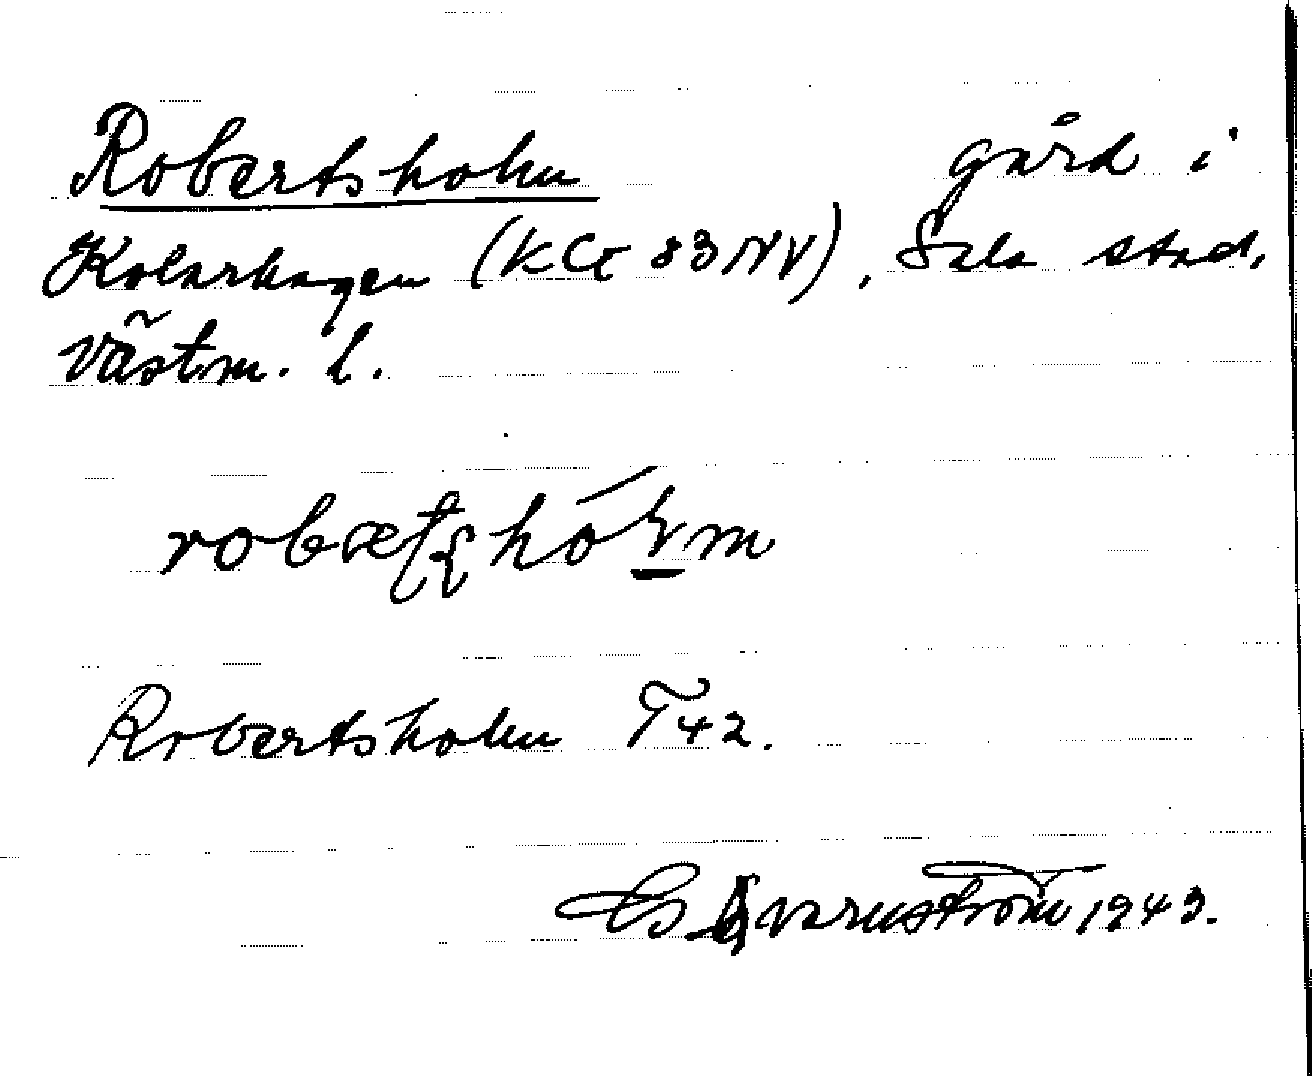 Robertsholm gård i
Kolarhagen (KG 83 NV), Sala stad,
Västm. l.
Robertsholm T 42.
Kvarnström 1943.